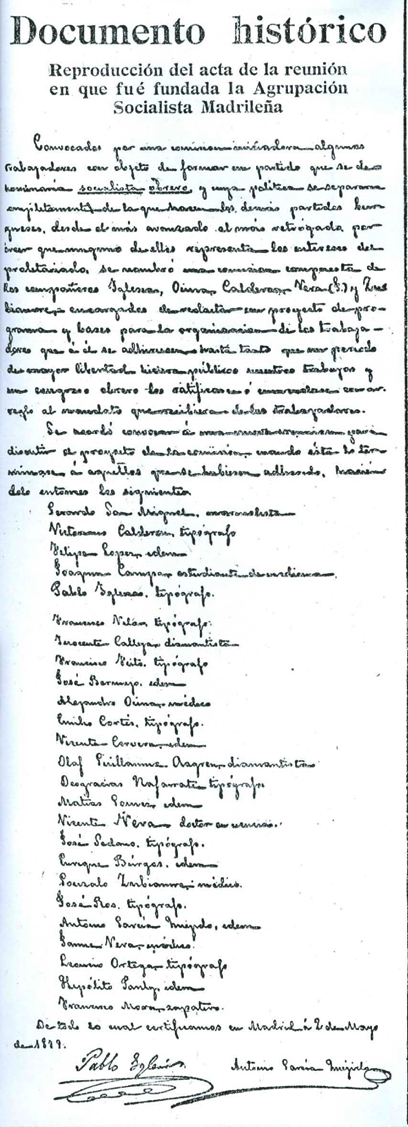 Documento histórico
Reproducción del acta de la reunión
en que fué fundada la Agrupación
Socialista Madrileña
Convocados por una comision iniciadora algunos
trabajadores con objeto de formar un partido que se de-
nominaria socialista obrero y cuya politica se separara
completamente de la que hacen los demás partidos bur-
gueses, desde el más avanzado al más retrogado por
creer que ninguno de ellos representa los intereses del
proletariado, se nombró una comision compuesta de
los compañeros Iglesias, Ocina, Calderon, Vera (J.) y Zu-
biaurre, encargados de redactar un proyecto de pro-
grama y bases para la organizacion de los trabaja-
dores que á él se adhiriesen hasta tanto que un periodo
de mayor libertad hiciera públicos nuestros trabajos y
un congreso obrero los ratificase ó enmendase con ar-
reglo al mandato que recibiera de los trabajadores.
Se acordó convocar á una nueva reunion para
discutir el proyecto de la comision, cuando ésta lo ter-
minase á aquellos que se hubiesen adherido, hacién-
dolo entonces los siguientes
Gerardo San Miguel, marmolista
Victoriano Calderon, tipógrafo
Felipe Lopez, idem
Joaquin, estudiante de medicina.
Pablo Iglesias, tipógrafo.
Francisco, tipógrafo.
Inocente Calleja, diamantista
Francisco, tipógrafo
José Bermejo, idem
Alejandro Ocina, médico
Emilio Cortés, tipógrafo.
Vicente Cervera, idem
Olaf Guillaume, diamantista
Deogracias Nafarrate, tipógrafo
Matias Gomez, idem
Vicente Vera doctor en ciencias.
José Sedano, tipógrafo.
Enrique Búrgos, idem
Gonzalo Zubiaurre, médico.
José Ros, tipógrafo.
Antonio Garcia Quejido, idem
Jaime Vera, médico.
Lesmio Ortega, tipógrafo
Hipólito Pauly, idem
Francisco Mora, zapatero.
De todo lo cual certificamos en Madrid á 2 de Mayo
de 1879.
Pablo Iglesias Antonio Garcia Quejido